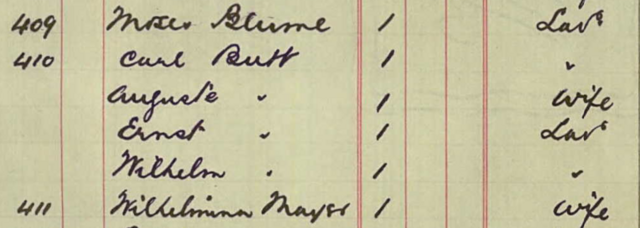 409 Moses Blume 1 Labr
410 Carl Butt 1 "
Auguste " 1 Wife
Ernst " 1 Labr
Wilhelm " 1 "
411 Wilhelmina Mayer 1 Wife